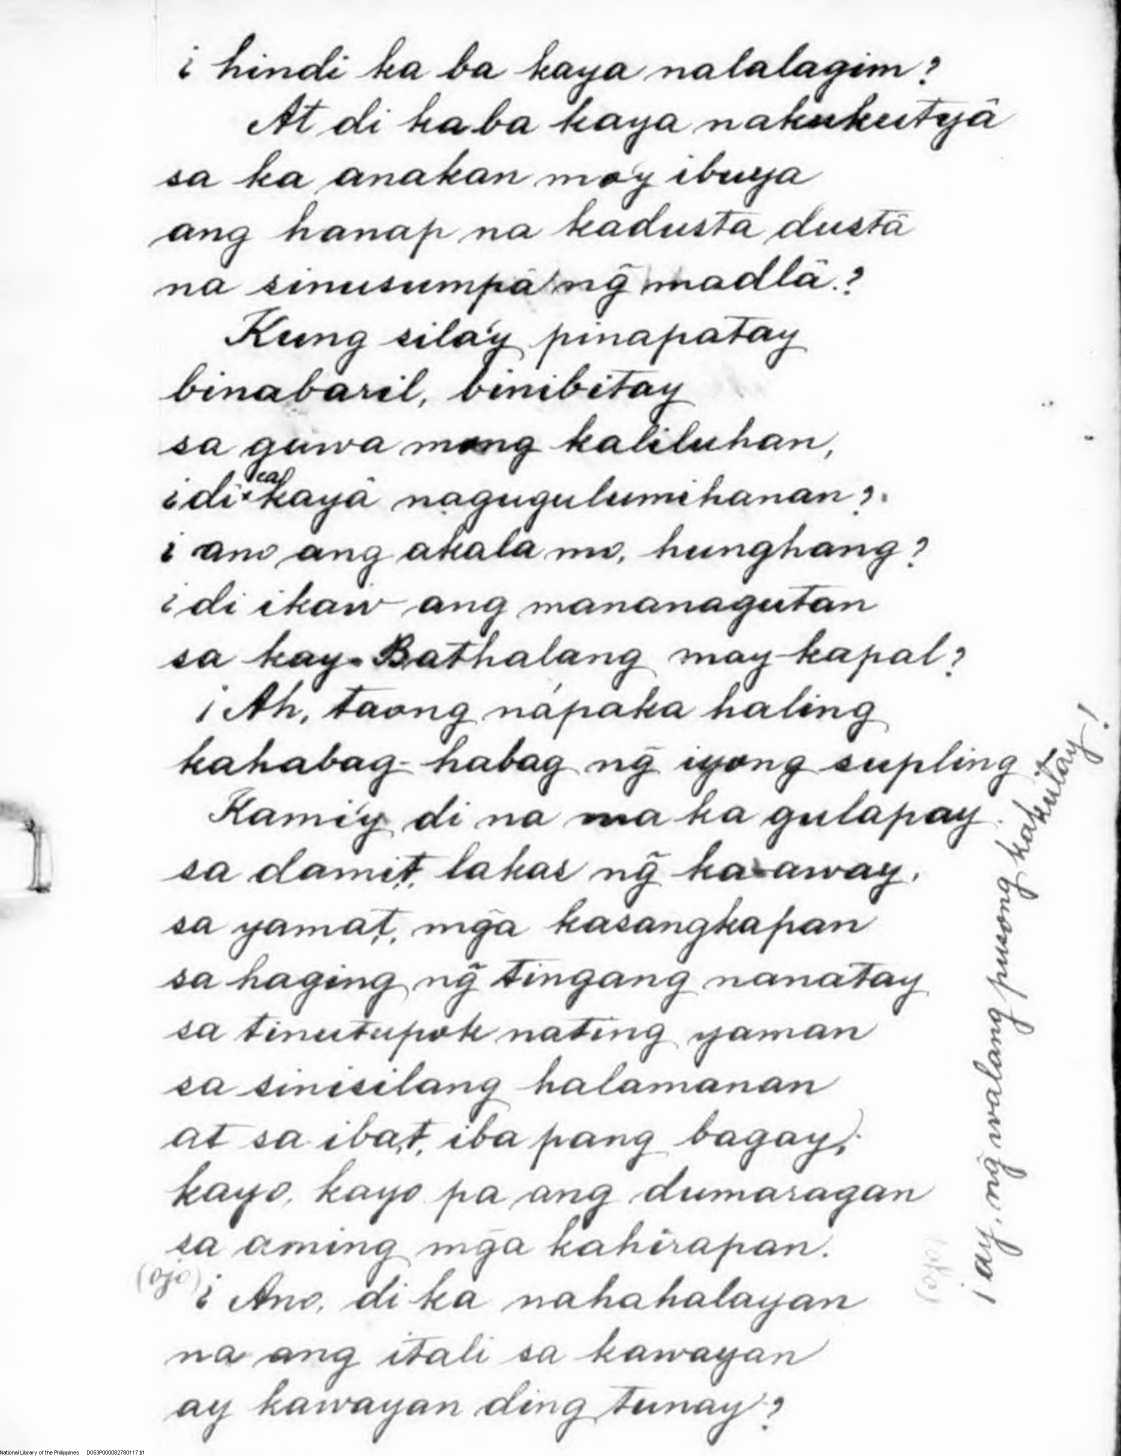 ¿ hindi ka ba kaya nalalagim?
At di ka ba kaya nakukutyâ
sa ka anakan mo'y ibuya
ang hanap na kadusta dustâ
na sinusumpâ ng̃ madlâ.?
Kung sila'y pinapatay
binabaril, binibitay
sa gawa mong kaliluhan,
¿di kayâ nagugulumihanan?
¿ ano ang akala mo, hunghang?
¿di ikaw ang mananagutan
sa kay Bathalang may-kapal?
¡Ah, taong nápaka haling
kahabag-habag ng̃ iyong supling
Kami'y di na ma ka gulapay
sa damit, lakas ng̃ ka-away,
sa yamat, mg̃a kasangkapan
sa haging ng̃ tingang nanatay
sa tinutupok nating yaman
sa sinisilang halamanan
at sa ibat, iba pang bagay,
kayo, kayo pa ang dumaragan
sa aming mg̃a kahirapan.
(ojo)
¿ Ano, di ka nahahalayan
na ang itali sa kawayan
ay kawayan ding tunay?
(ojo)
¡ ay, ng̃ walang pusong kakulay!
National Library of the Philippines